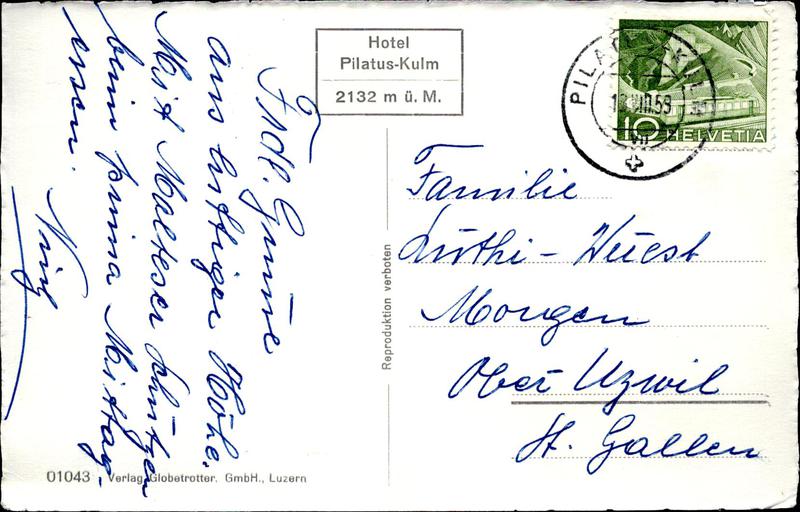 Hotel
Pilatus-Kulm
2132 m ü. M.
PILATUS-KULM
10 HELVETIA
Frdl. Grüsse
aus luftiger Höhe.
Mit Malteser Schützen
beim prima Mittag-
essen.
Familie
Lüthi-Wüest
Morgen
Ober Uzwil
St. Gallen
Reproduktion verboten
01043 Verlag Globetrotter. GmbH., Luzern